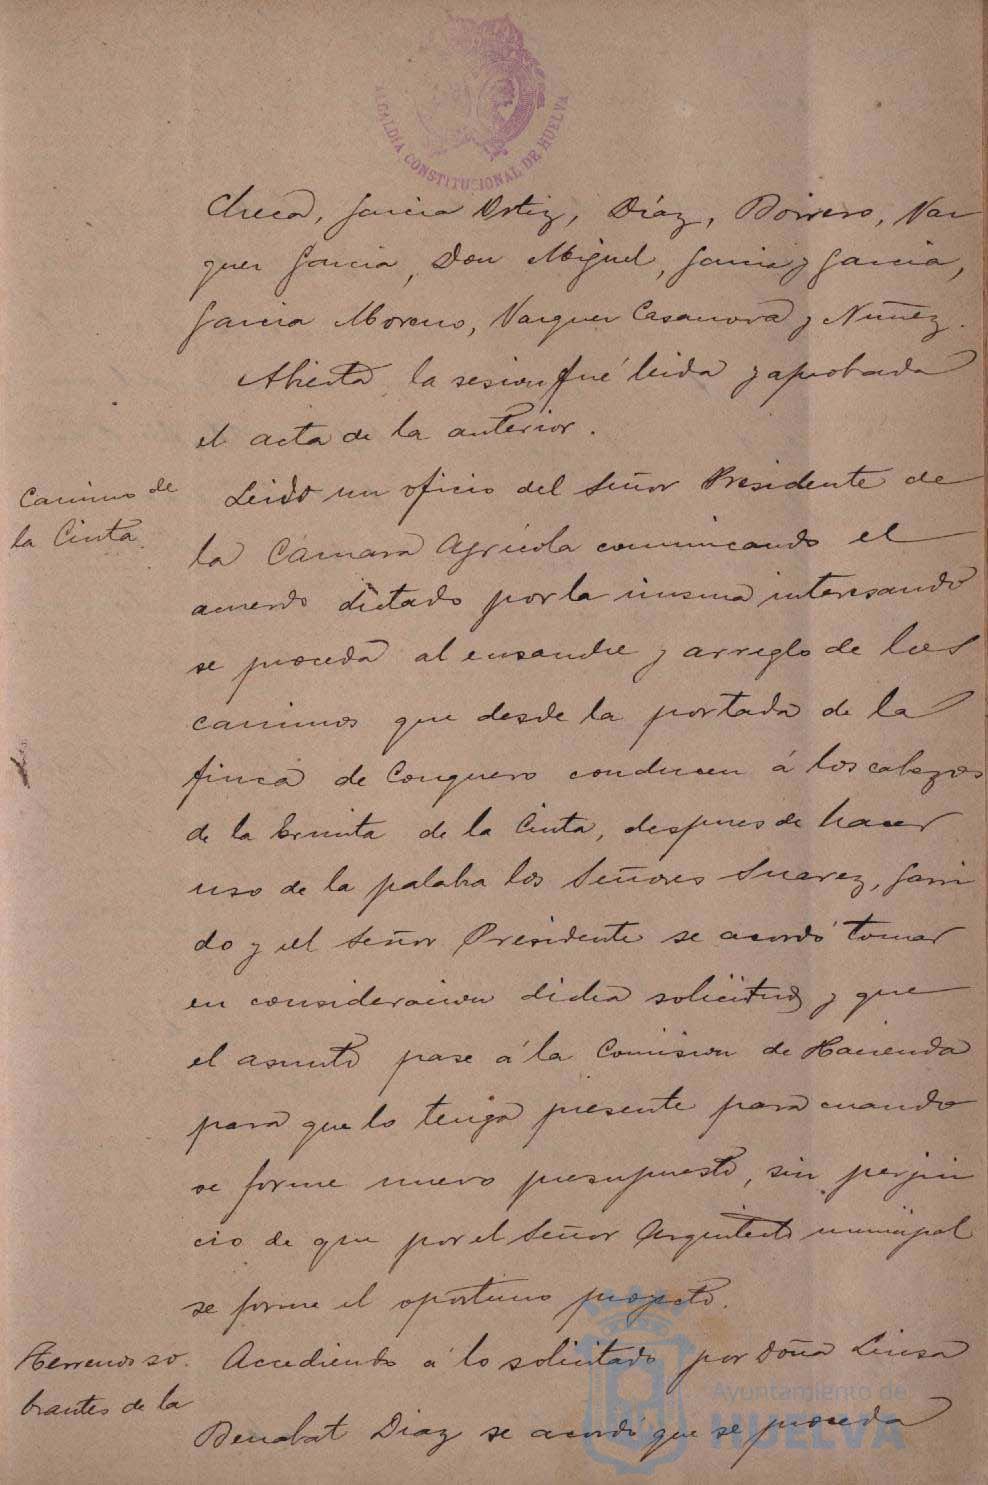 ALCALDIA CONSTITUCIONAL DE HUELVA
Checa, Garcia Ortiz, Díaz, Borrero, Vaz
quez Garcia, Don Miguel, Garcia y Garcia,
Garcia Moreno, Vazquez Casanova y Nuñez.
Abierta la sesion fué leida y aprobada
el acta de la anterior.
Camino de
la Cinta.
Leido un oficio del Señor Presidente de
la Camara Agrícola comunicando el
acuerdo dictado por la misma interesando
se proceda al ensanche y arreglo de los
caminos que desde la portada de la
finca de Conquero conducen á los cabezos
de la Ermita de la Cinta, despues de hacer
uso de la palabra los Señores Suarez, Garri
do y el Señor Presidente se acordó tomar
en consideracion dicha solicitud y que
el asunto pase á la Comision de Hacienda
para que lo tenga presente para cuando
se forme nuevo presupuesto, sin perjui
cio de que por el Señor Arquitecto municipal
se forme el oportuno proyecto.
Terrenos so
brantes de la
Accediendo á lo solicitado por Doña Luisa
Benabat Diaz se acordó que se proceda
Ayuntamiento de
HUELVA